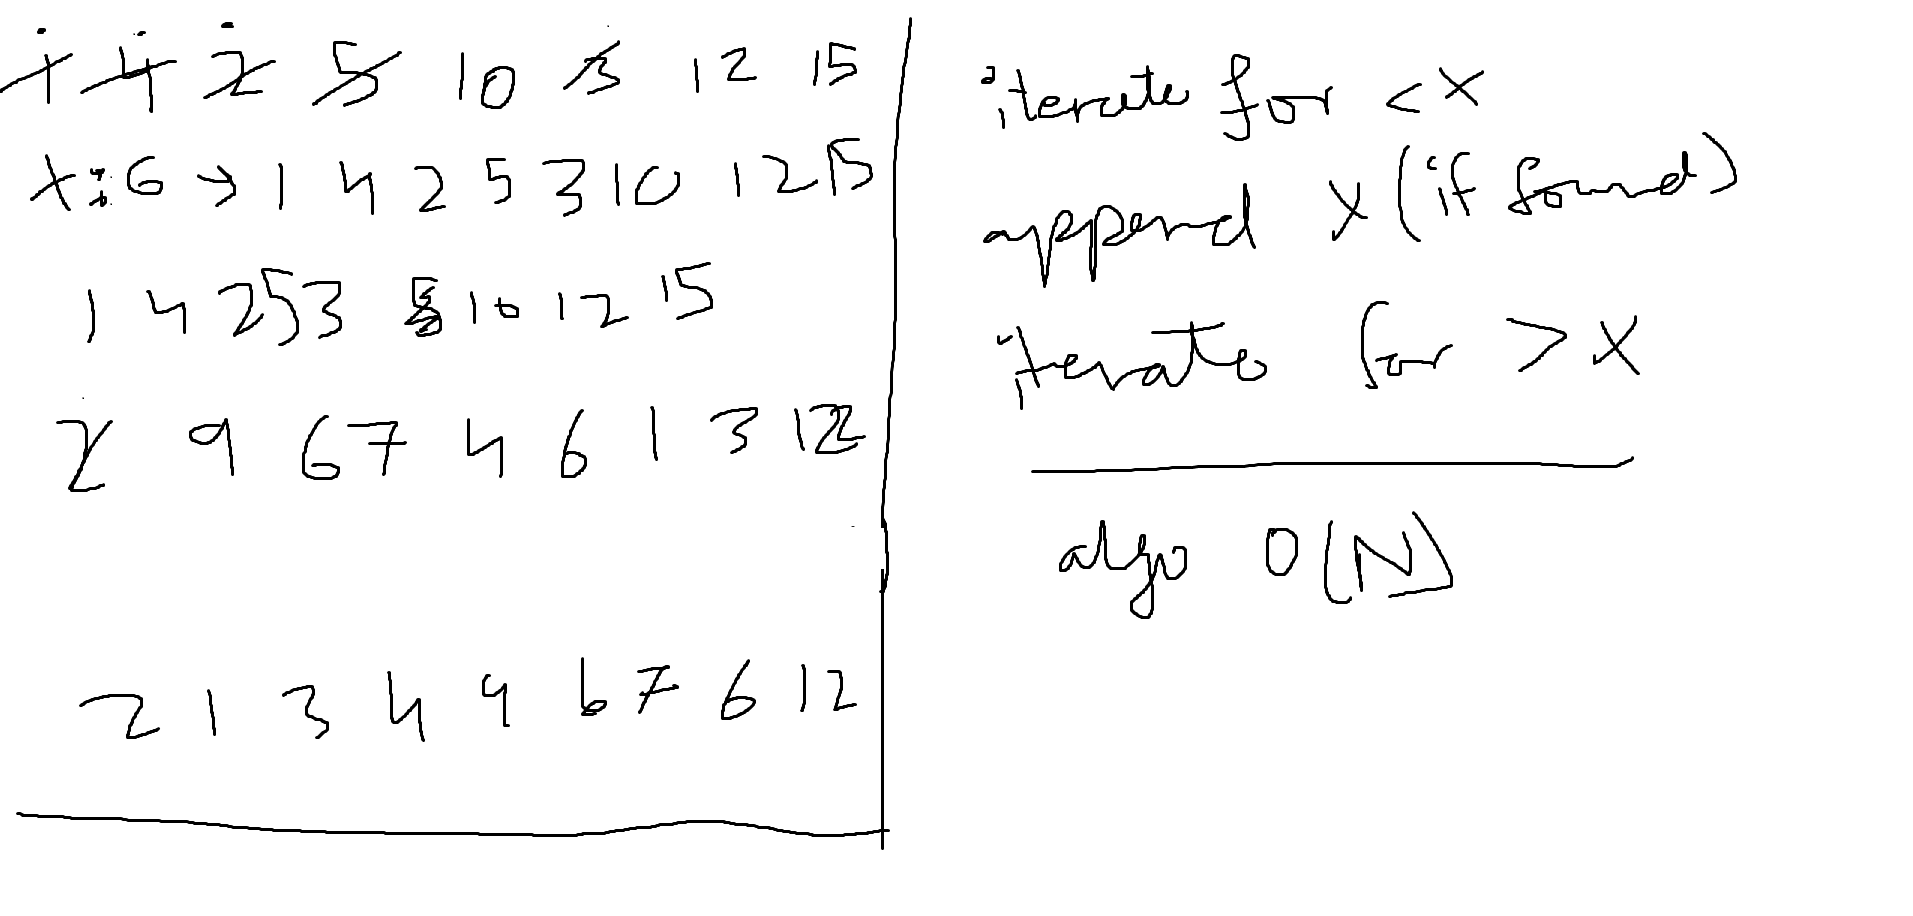 1 4 2 5 10 3 12 15
x: 6 → 1 4 2 5 3 10 12 15
1 4 2 5 3 10 12 15
2 9 6 7 4 6 1 3 12
2 1 3 4 9 6 7 6 12
iterate for < x
append x (if found)
iterate for > x
algo O(N)